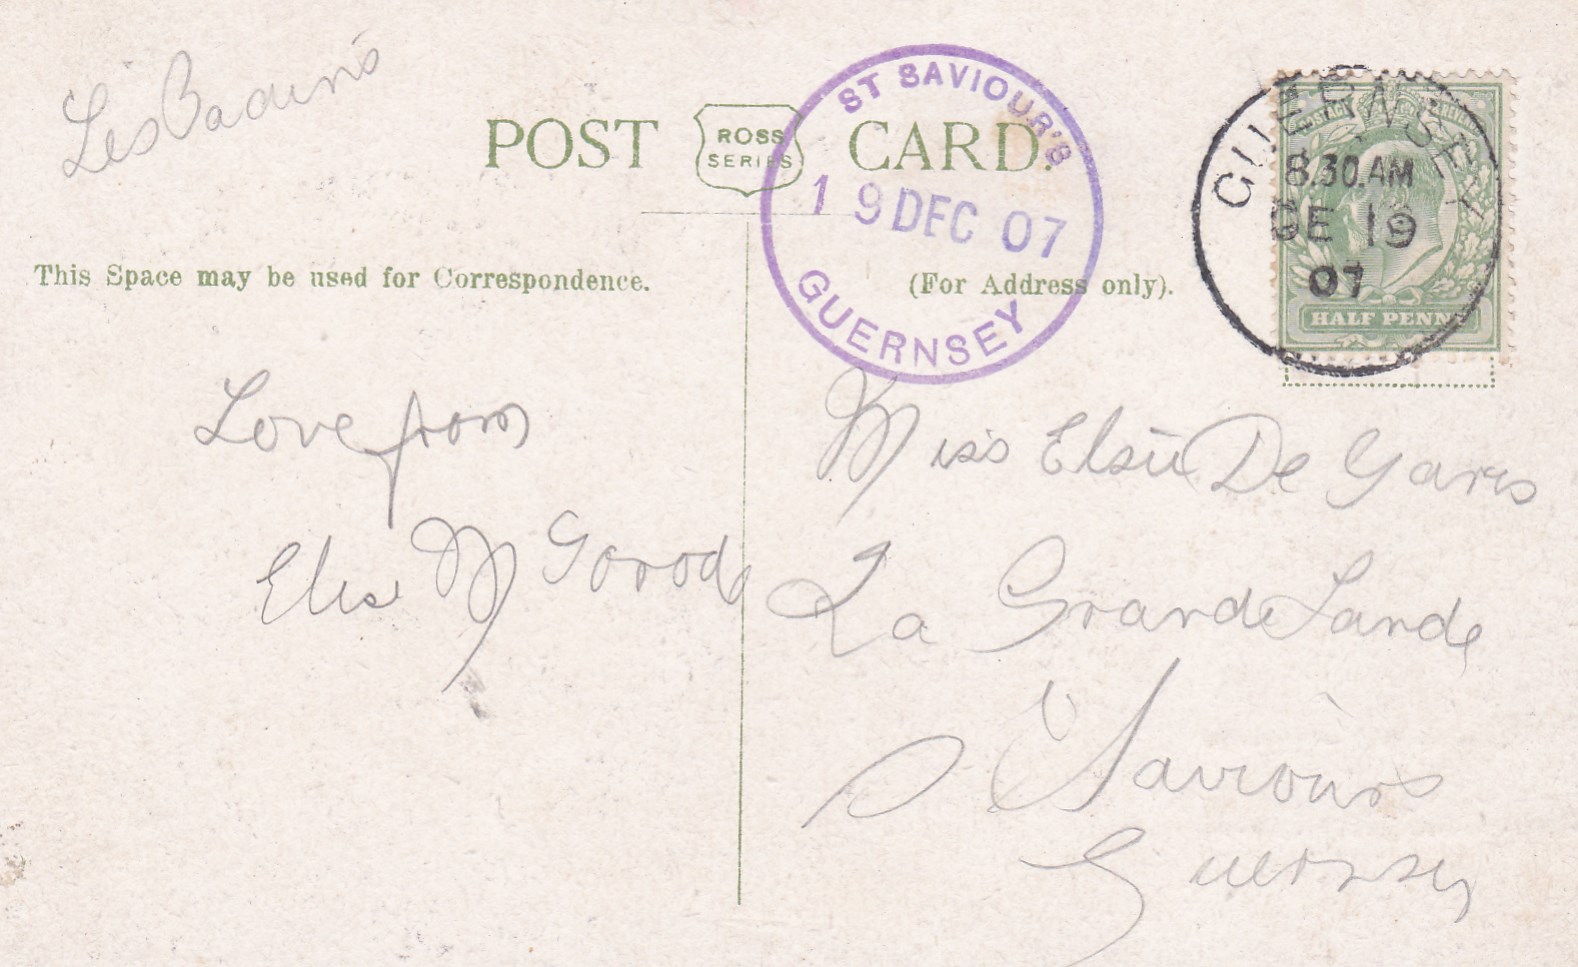 Les Badins
POST ROSS SERIES CARD.
ST SAVIOUR'S
19 DEC 07
GUERNSEY
GUERNSEY
8.30.AM
DE 19
07
HALF PENNY
This Space may be used for Correspondence.
(For Address only).
Love from
Elise M
Miss Elsie De Garis
La Grande Lande
P Saviours
Guernsey